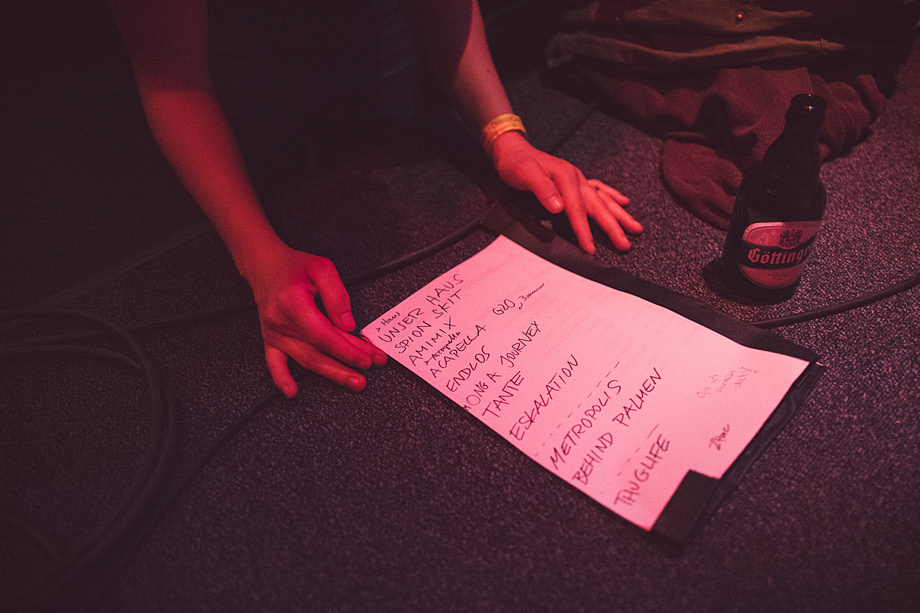 > Haus
UNSER HAUS
SPION SKIT
AMIMIX
> Acapella
ACAPELLA G20
ENDLOS
MONG A JOURNEY
TANTE
ESKALATION
METROPOLIS
BEHIND PALMEN
THUGLIFE
Götting